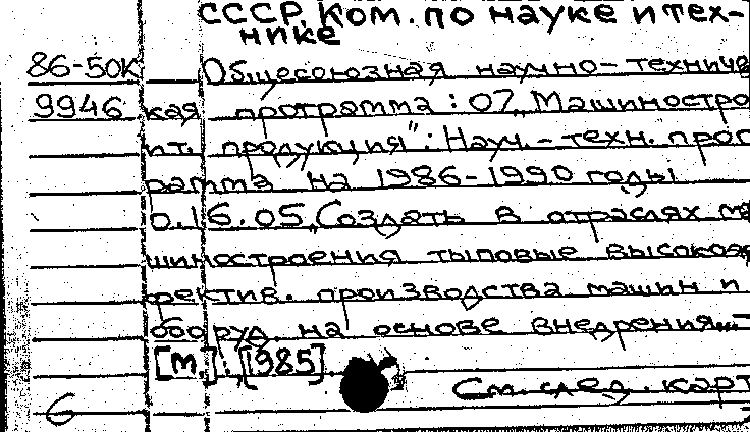 СССР. Ком. по науке и тех-
нике
86-50к Общесоюзная научно-техниче
9946 кая программа: 07 „Машиностро
ит. продукция": Науч.-техн. прог
рамма на 1986-1990 годы
0.16.05 „Создать в отраслях ма
шиностроения типовые высокоэф
фектив. производства машин и
оборуд. на основе внедрения..."
[М.]: [1985]
См. след. карт
6